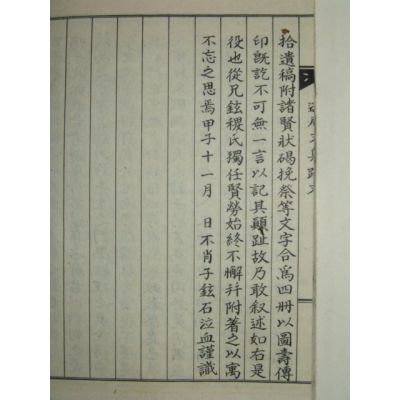 拾遺稿附諸賢狀碣挽祭等文字合爲四册以圖壽傳
印旣訖不可無一言以記其顚趾故乃敢叙述如右是
役也從兄鉉稷氏獨任賢勞始終不懈幷附著之以寓
不忘之思焉甲子十一月 日不肖子鉉石泣血謹識